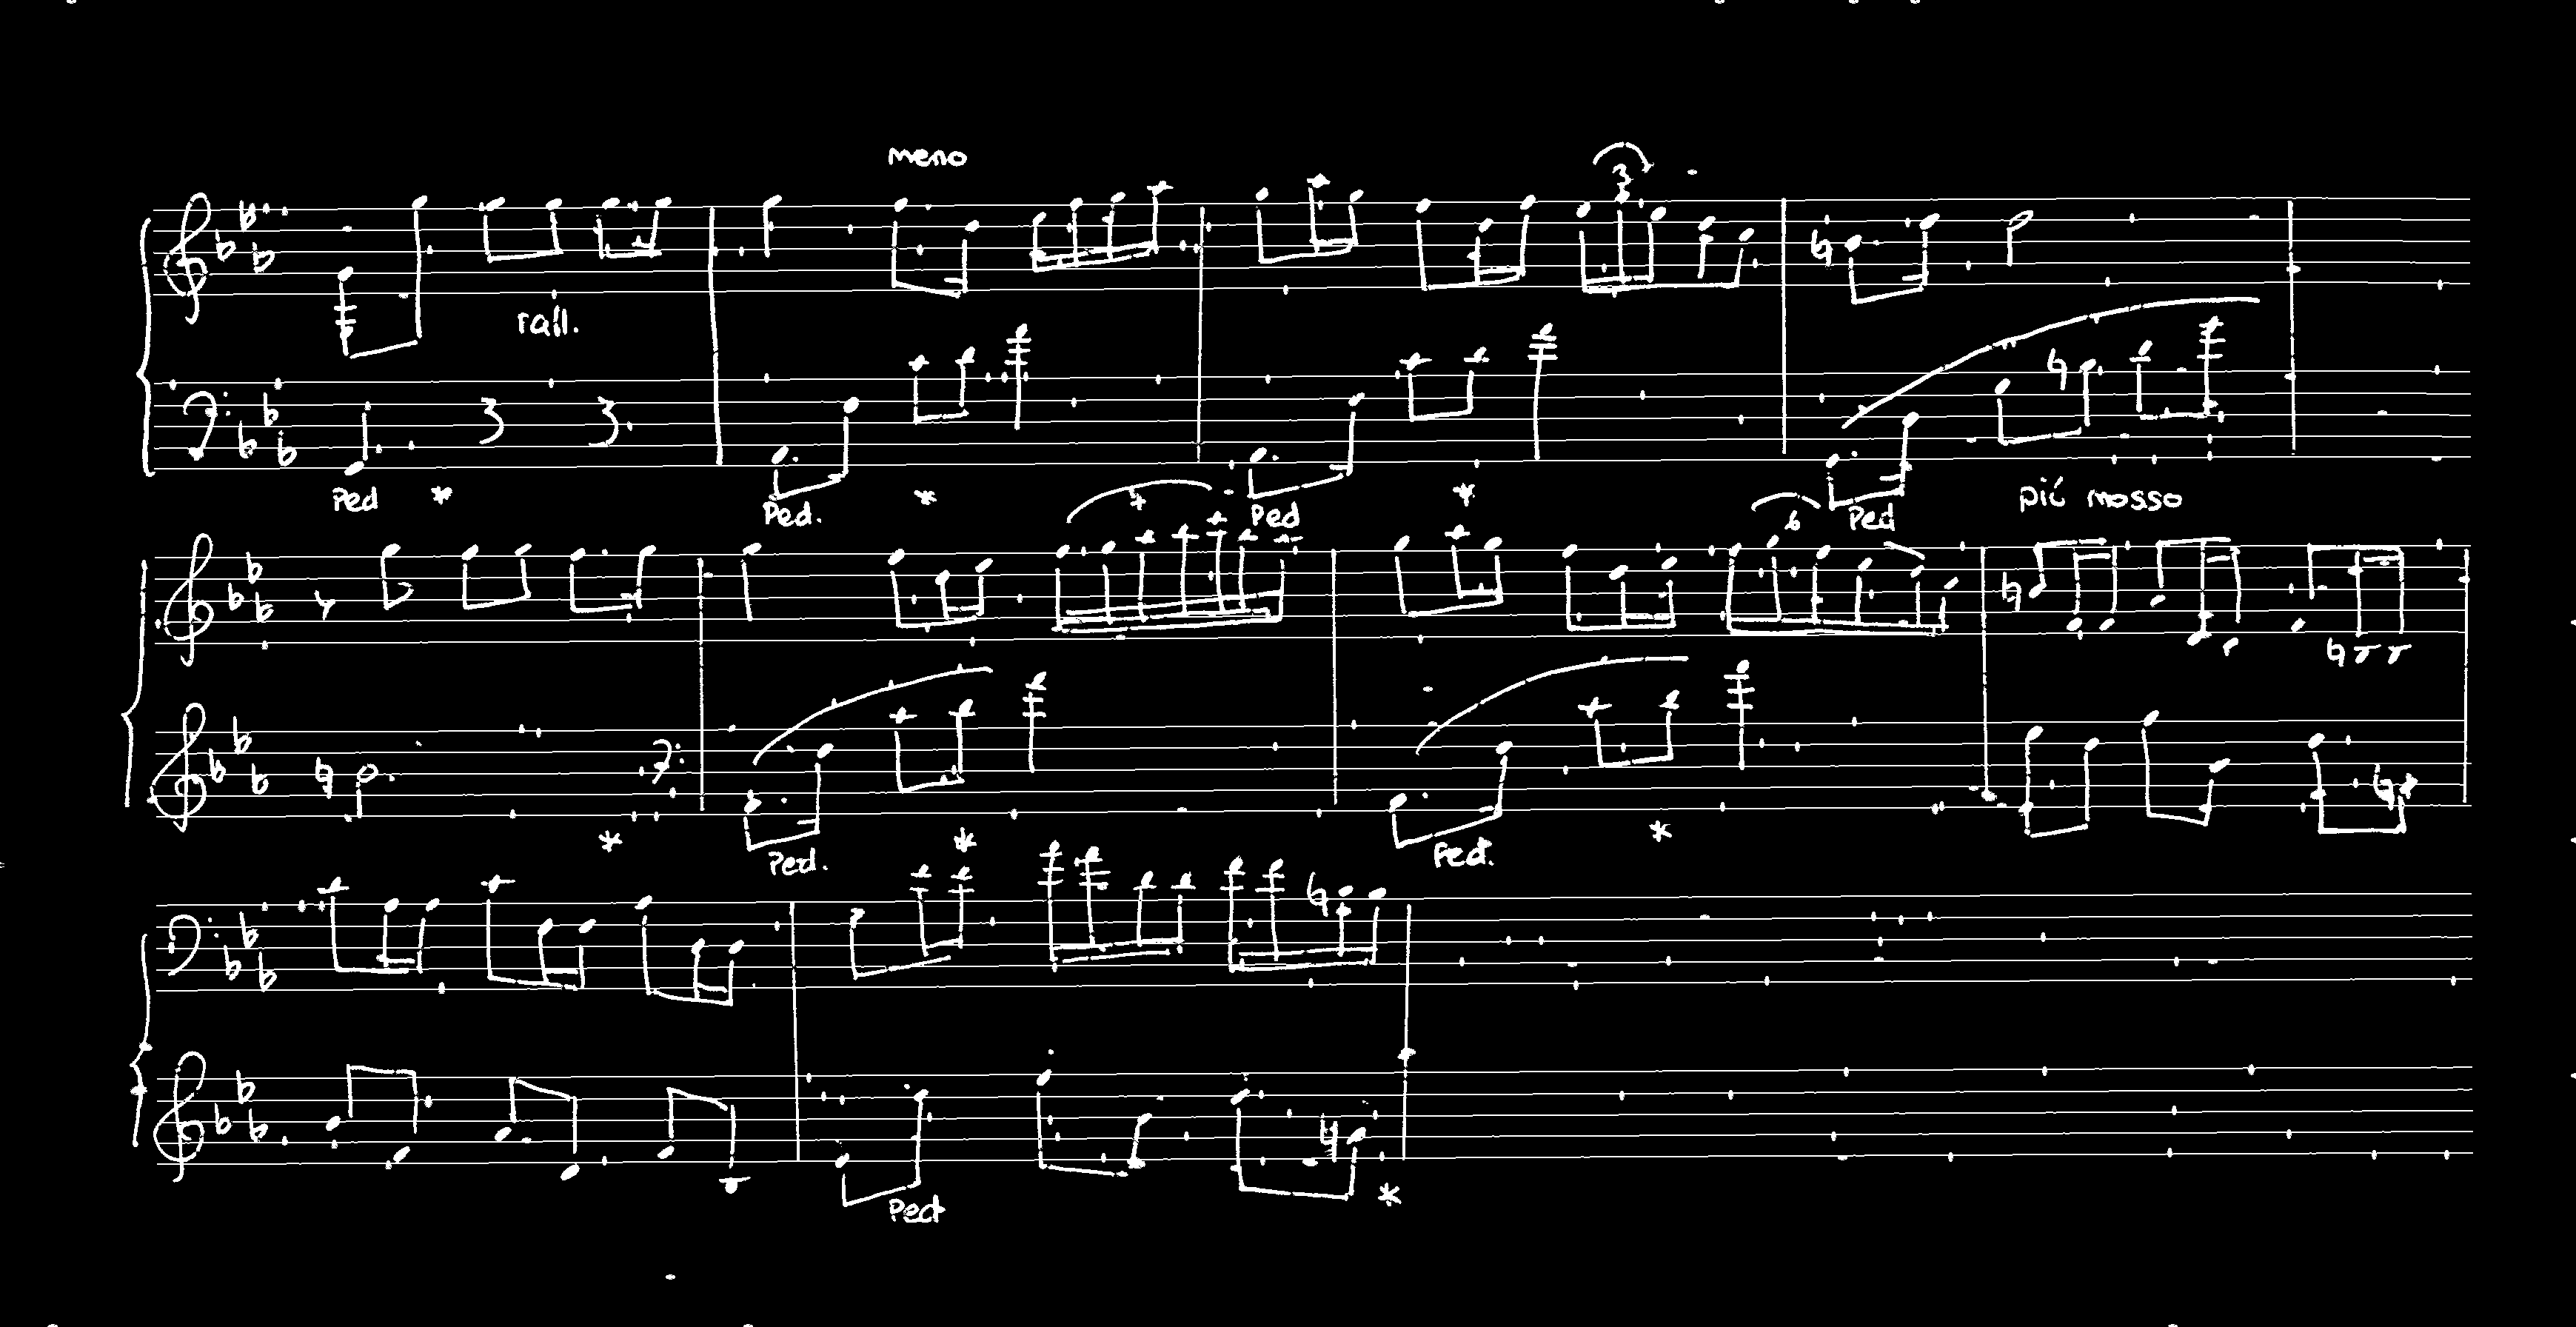 meno
3
rall.
Ped * Ped. * Ped * Ped
7 6 più mosso
* Ped. * Ped. *
Ped *